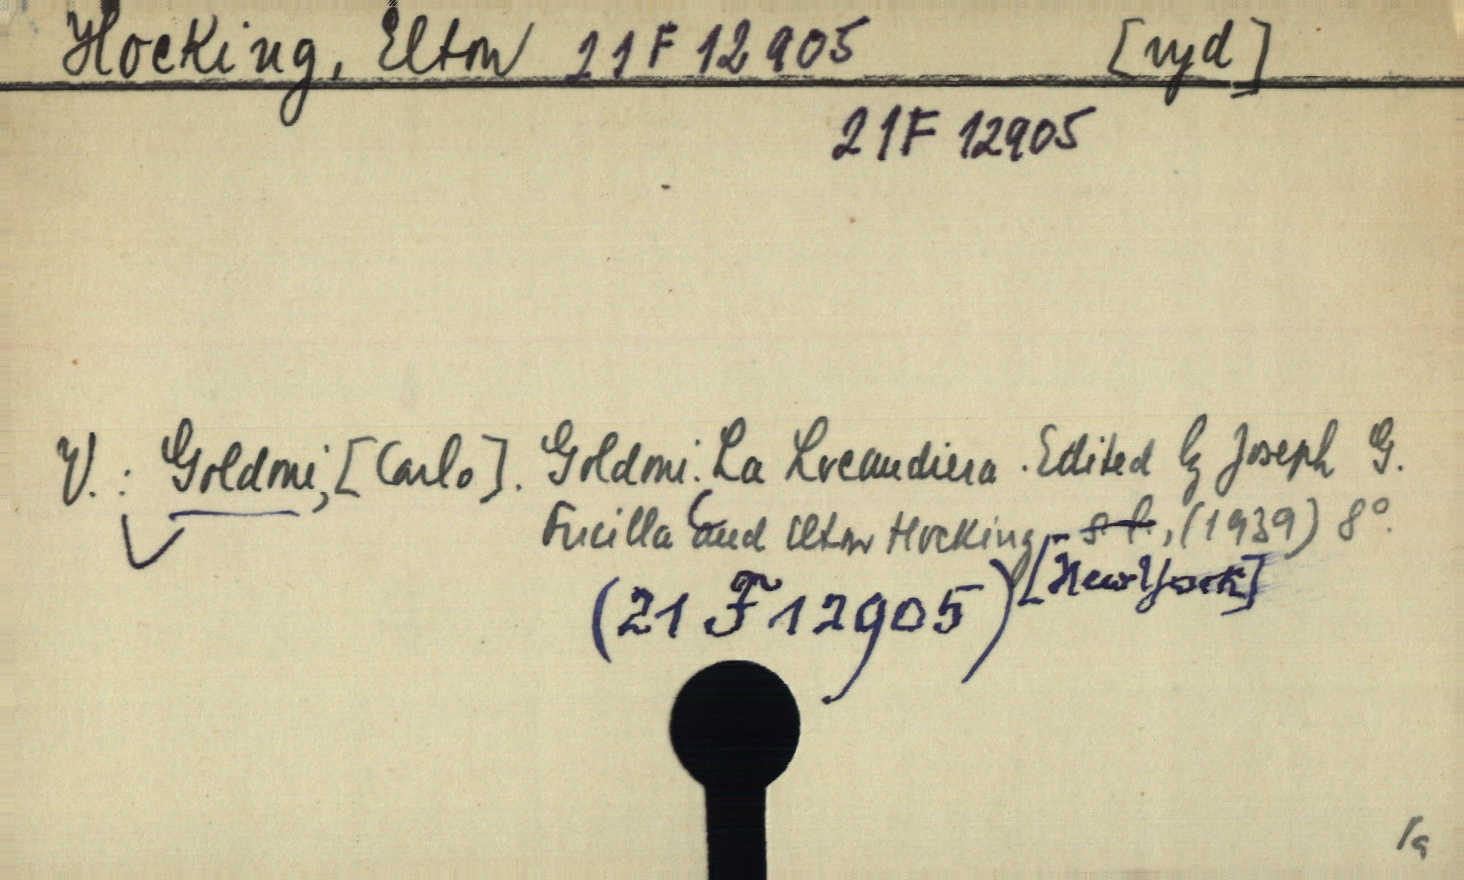 Hocking, Elton 21 F 12905 [vyd]
21F 12905
V. : Goldoni, [Carlo]. Goldoni: La Locandiera. Edited by Joseph G.
Fucilla and Elton Hocking. s. l., (1939) 8°.
[New York]
(21 F 12905)